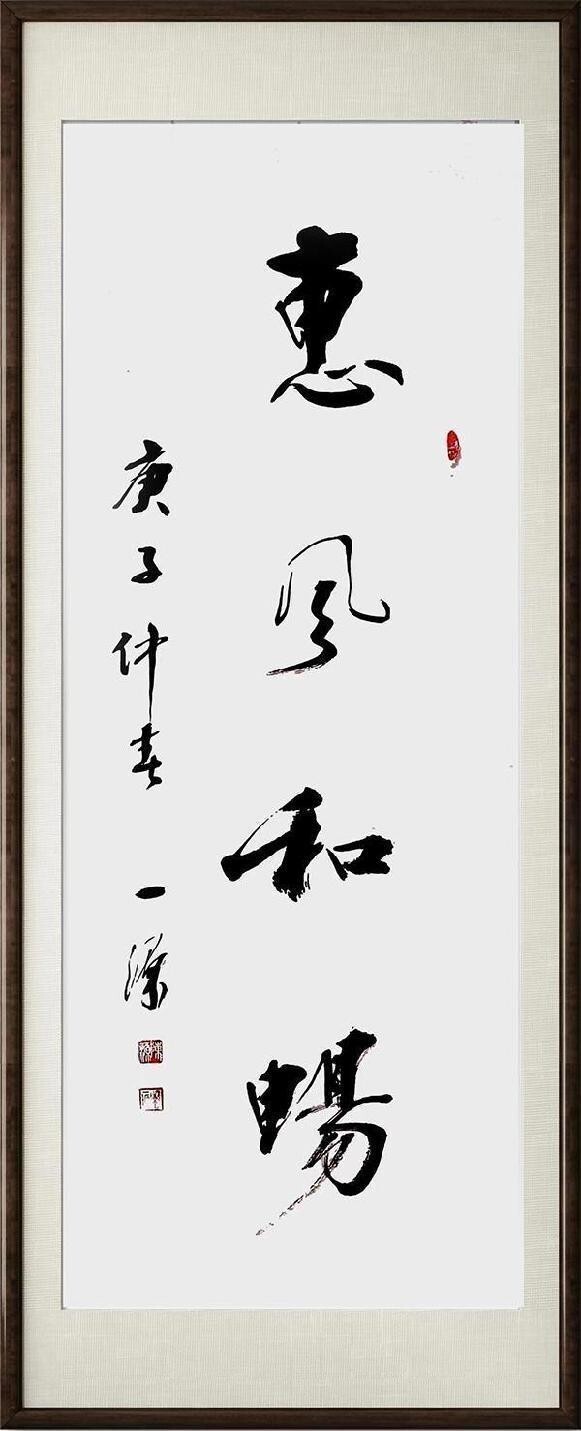 惠风和畅
庚子仲春 一